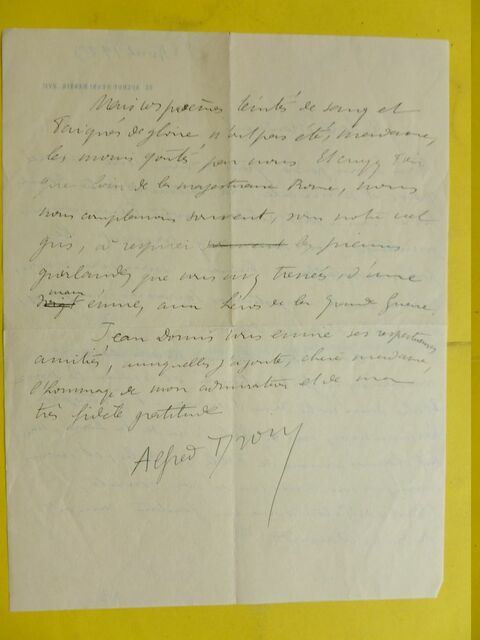 Mais vos poèmes teintés de sang et
baignés de gloire n'ont pas été, madame,
les moins goûtés par nous Et
que loin de la majestueuse Rome, nous
nous complaisons souvent, sous notre ciel
gris, à respirer souvent les pieuses
guirlandes que vous avez tressées, d'une
main
émue, aux héros de la Grande Guerre.
Jean Dornis vous envoie ses respectueuses
amitiés, auxquelles j'ajoute, chère madame,
l'hommage de mon admiration et de ma
très fidèle gratitude
Alfred Droin